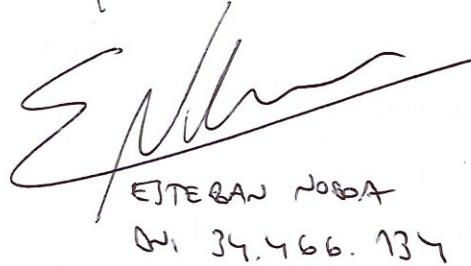 ESTEBAN NOBOA
DNI 34.466.134